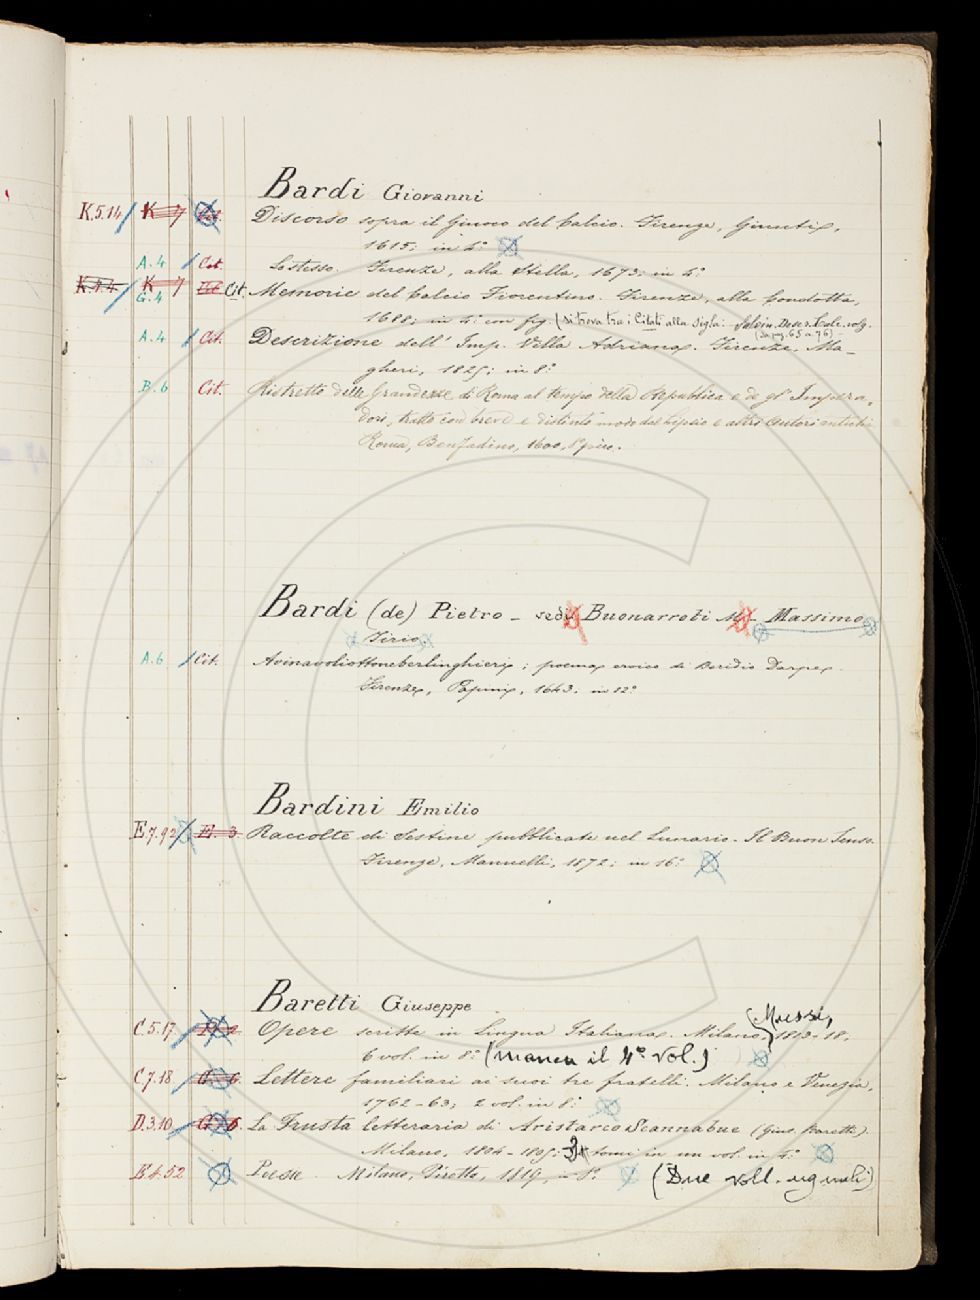 Bardi Giovanni
K.5.14 / K 7 Cit. Discorso sopra il Giuoco del Calcio. Firenze, Giunti,
1615; in 4.°
A.4 / Cit. Lo stesso. Firenze, alla Stella, 1673; in 4.°
K 7 Cit. Memorie del Calcio Fiorentino. Firenze, alla Condotta,
G.4
1688; in 4.° con fig. (si trova tra i Citati alla sigla: Salvin. Descr. Calc. volg.
(da pag. 65 a 76)
A.4 / Cit. Descrizione dell' Imp. Villa Adriana. Firenze, Ma-
gheri, 1825; in 8.°
B.6 Cit. Ristretto delle Grandezze di Roma al tempo della Repubblica e de gl' Impera-
dori, tratto con breve e distinto modo dal Lipsio e altri Autori antichi
Roma, Bonfadino, 1600,
Bardi (de) Pietro - vedi Buonarroti M. - Massimo
Tirio
A.6 / Cit. Avinavoliottoneberlinghieri; poema eroico di Baridio Darpe.
Firenze, Papini, 1643. in 12.°
Bardini Emilio
E.7.92 / Raccolte di Sestine pubblicate nel Lunario. Il Buon Senso.
Firenze, Mannelli, 1872; in 16.°
Baretti Giuseppe
(Mussi,
C.5.17. Opere scritte in Lingua Italiana. Milano, 1813-18,
6 vol. in 8.° (manca il 4° vol.)
C.7.18 / Lettere familiari ai suoi tre fratelli. Milano e Venezia,
1762-63; 2 vol. in 8.°
D.3.10 G 6. La Frusta letteraria di Aristarco Scannabue (Gius. Baretti).
Milano, 1804-1805: 3 tomi in un vol. in 4.°
E.4.52 Poesie. Milano, Pirotta, 1819, in 8.° (Due voll. uguali)